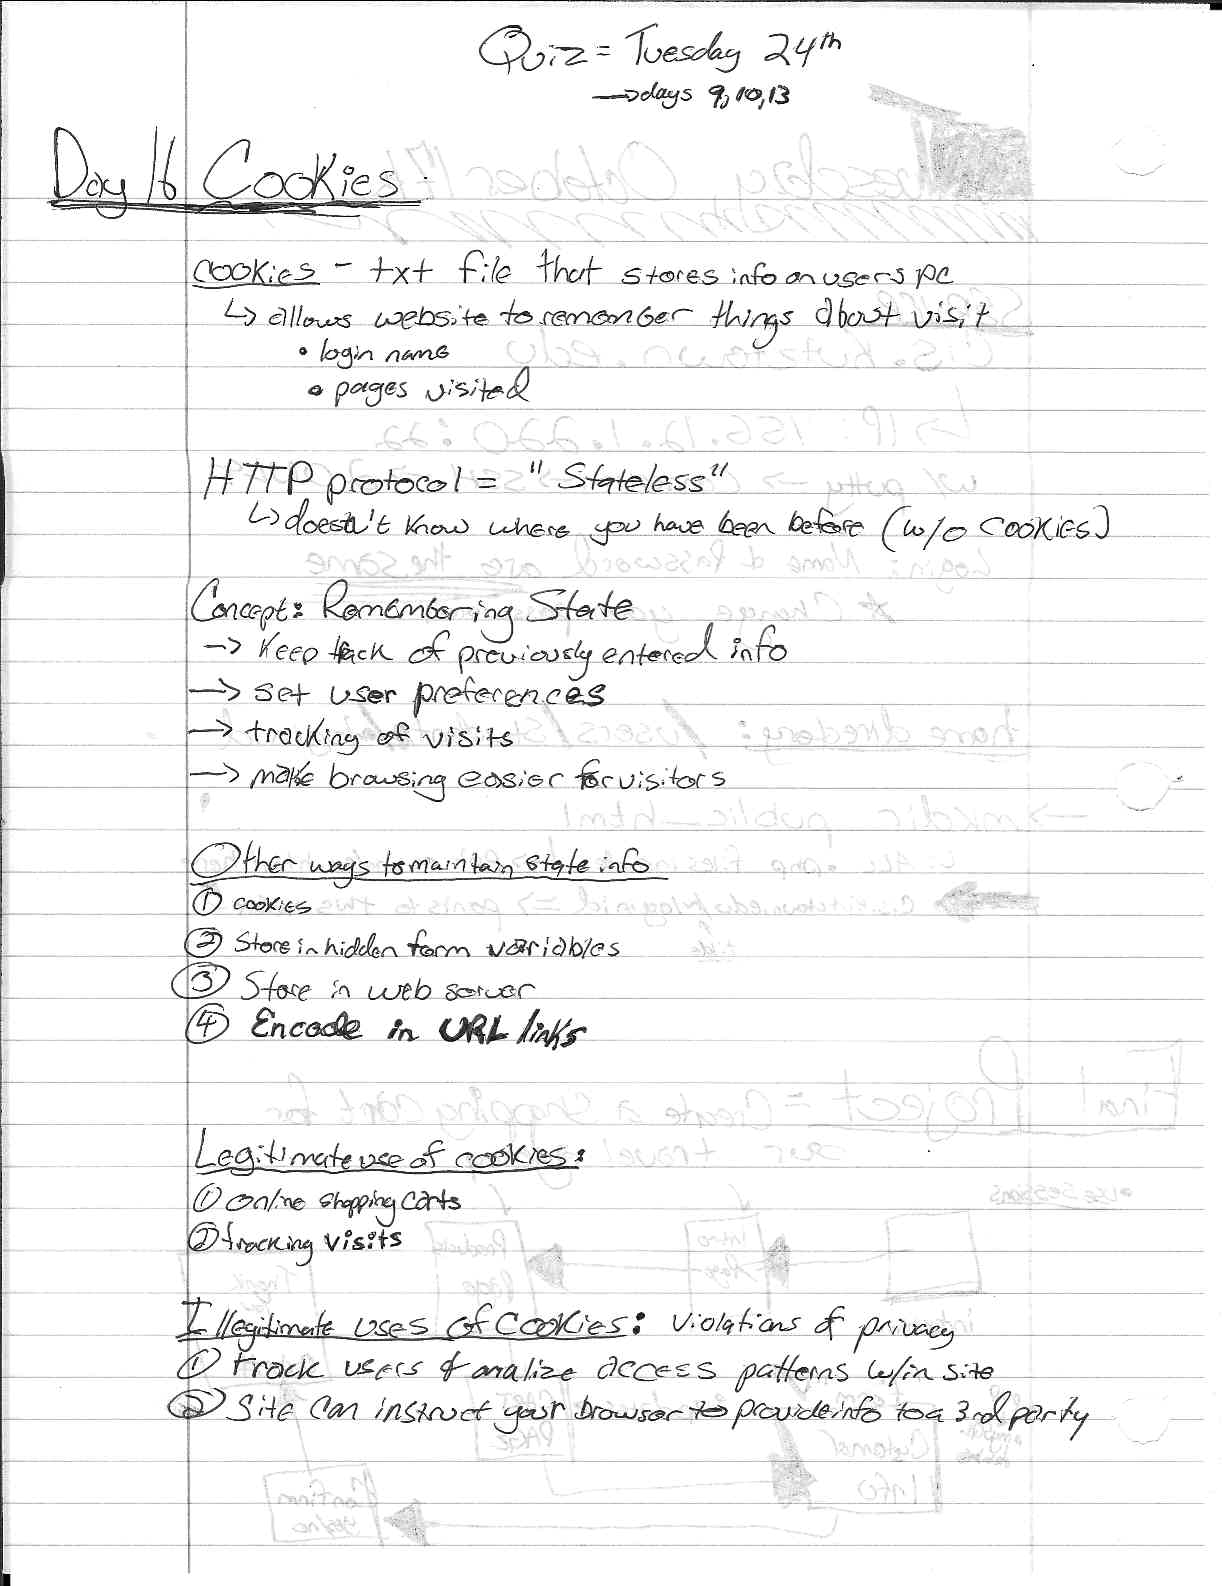 Quiz = Tuesday 24th
→ days 9, 10, 13
Day 16 Cookies
cookies - txt file that stores info on users pc
↳ allows website to remember things about visit
• login name
• pages visited
HTTP protocol = "Stateless"
↳ doesn't know where you have been before (w/o cookies)
Concept: Remembering State
→ Keep track of previously entered info
→ set user preferences
→ tracking of visits
→ make browsing easier for visitors
Other ways to maintain state info
① cookies
② Store in hidden form variables
③ Store in web server
④ Encode in URL links
Legitimate use of cookies:
① online shopping carts
② tracking visits
Illegitimate uses of cookies: violations of privacy
① track users & analize access patterns w/in site
② Site can instruct your browser to provide info to a 3rd party